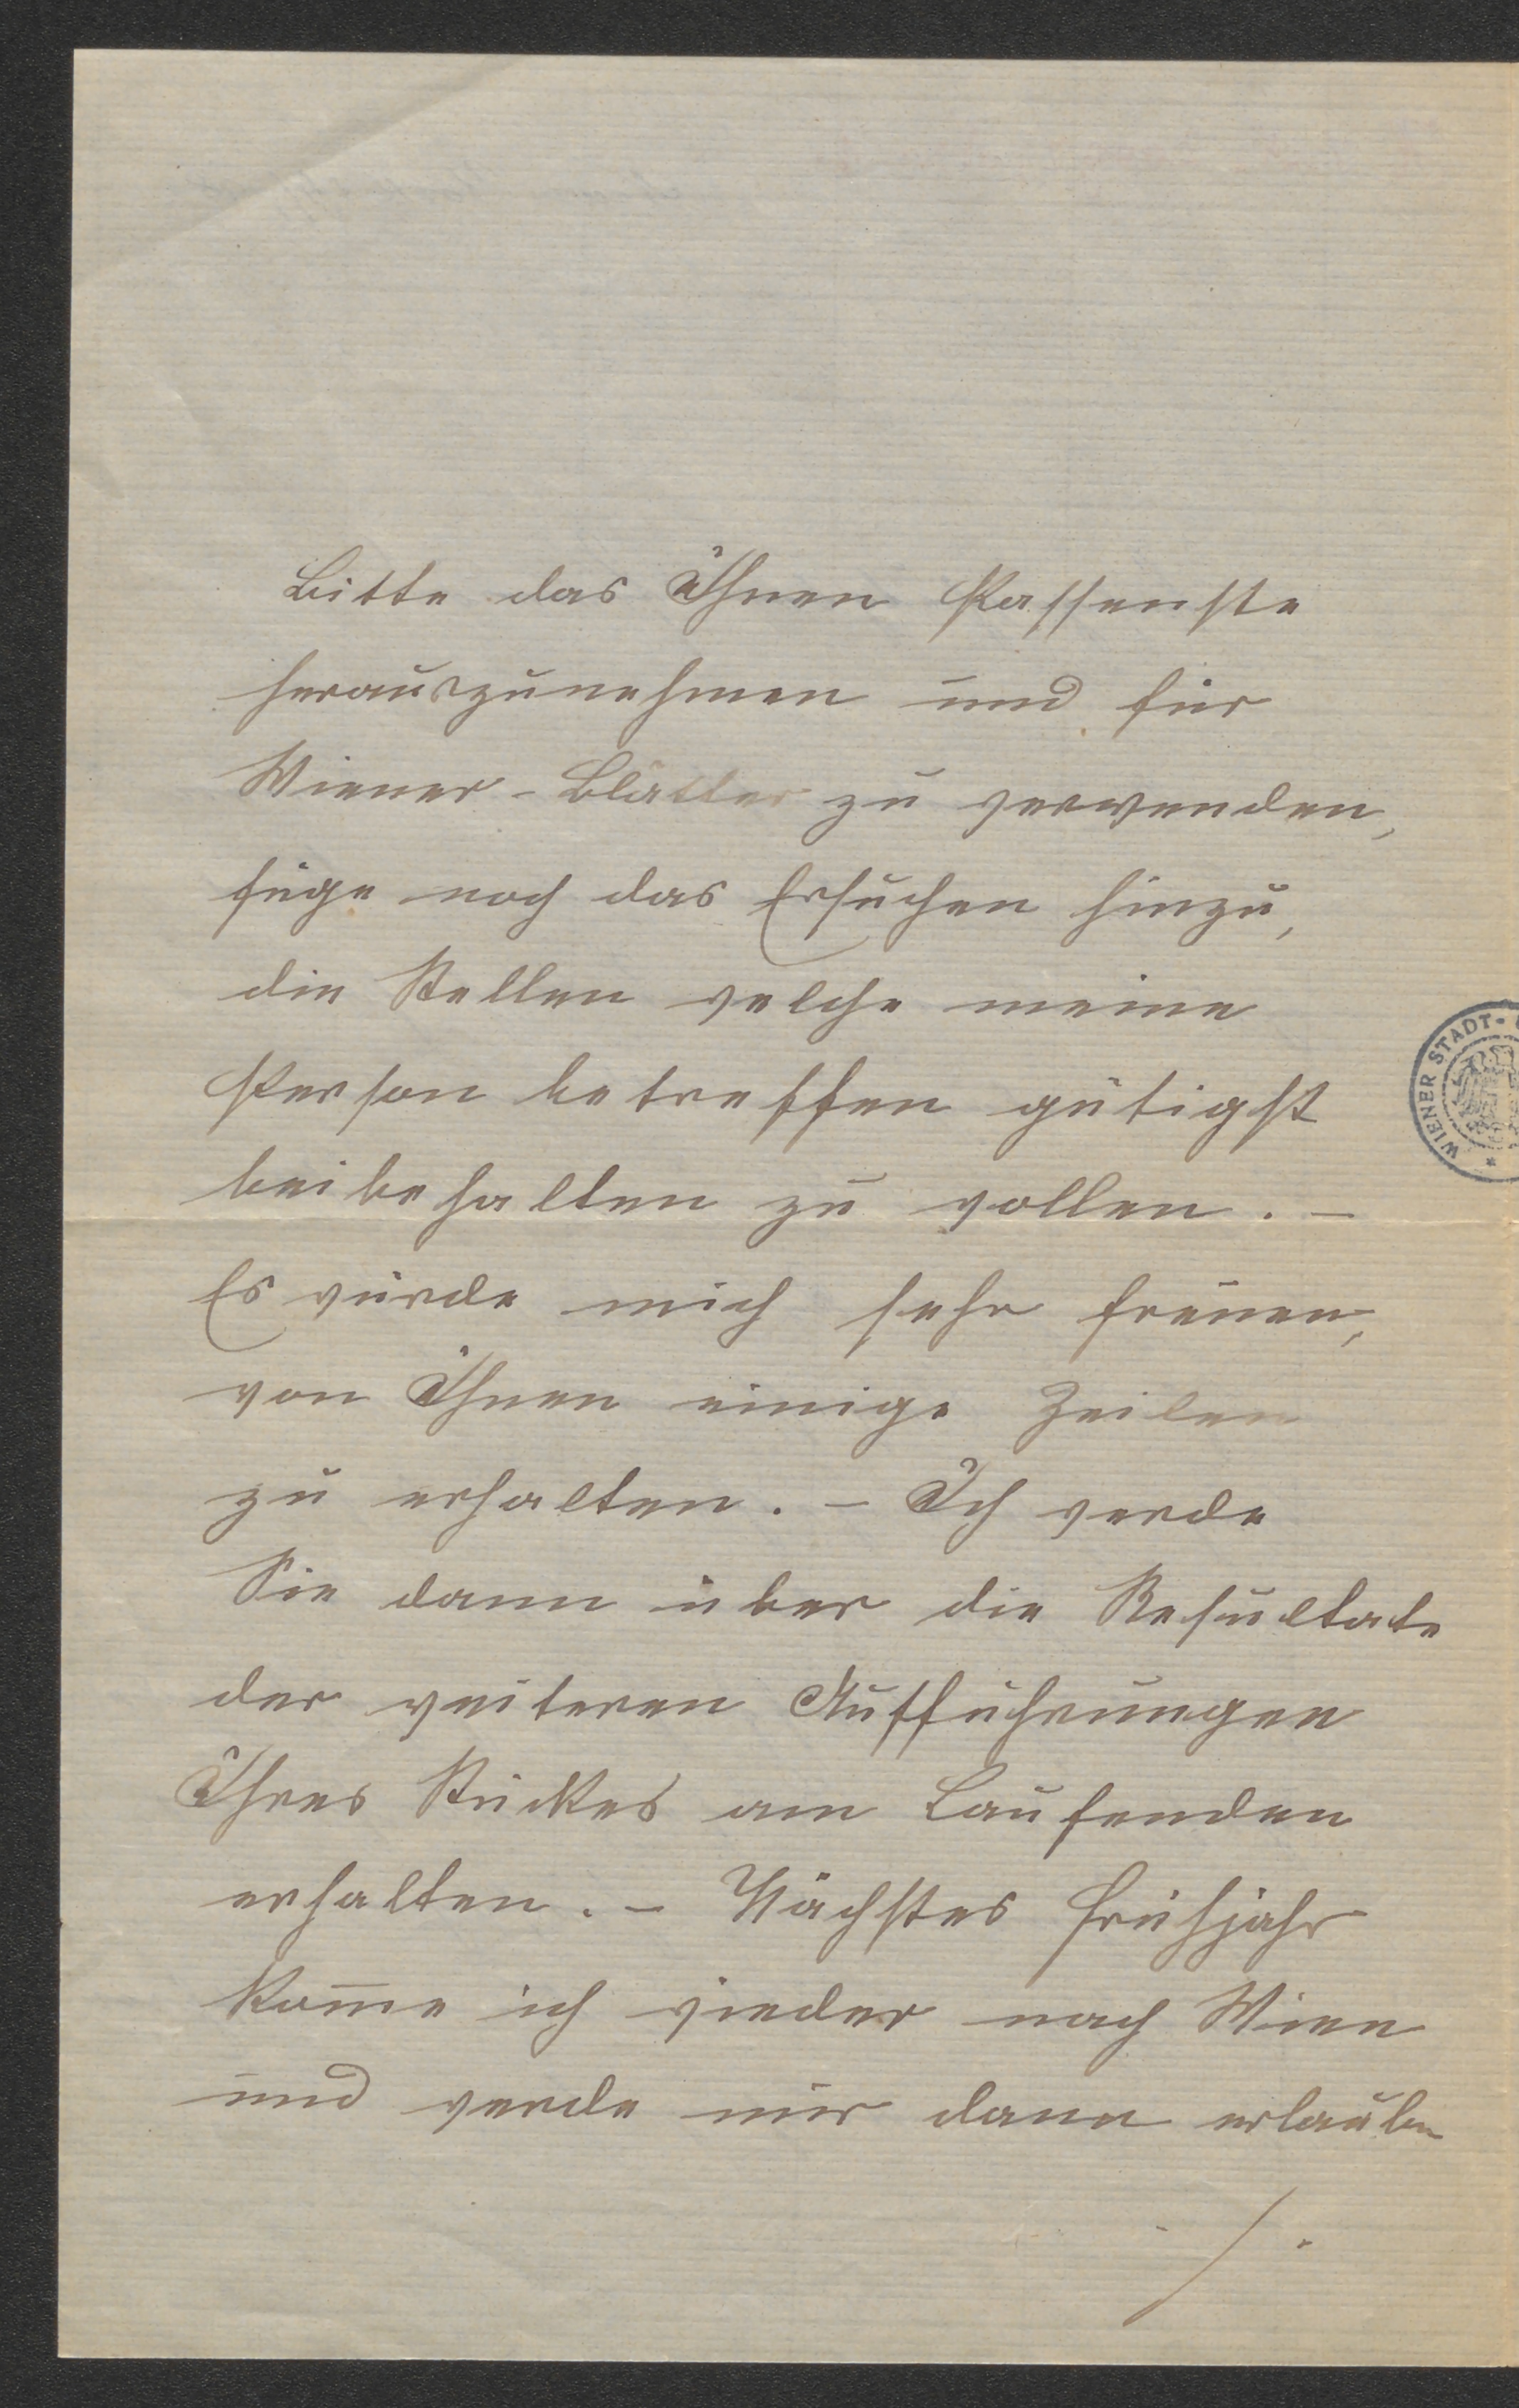 Bitte das Ihnen Passenste
herauszunehmen und für
Wiener-Blätter zu verwenden,
füge noch das Ersuchen hinzu,
die Stellen welche meine
Person betreffen gütigst
beibehalten zu wollen. –
Es würde mich sehr freuen,
von Ihnen einige Zeilen
zu erhalten. – Ich werde
Sie dann über die Resultate
der weiteren Aufführungen
Ihres Stückes am Laufenden
erhalten. – Nächstes Frühjahr
kom̅e ich wieder nach Wien
und werde mir dann erlauben
./.
WIENER STADT-